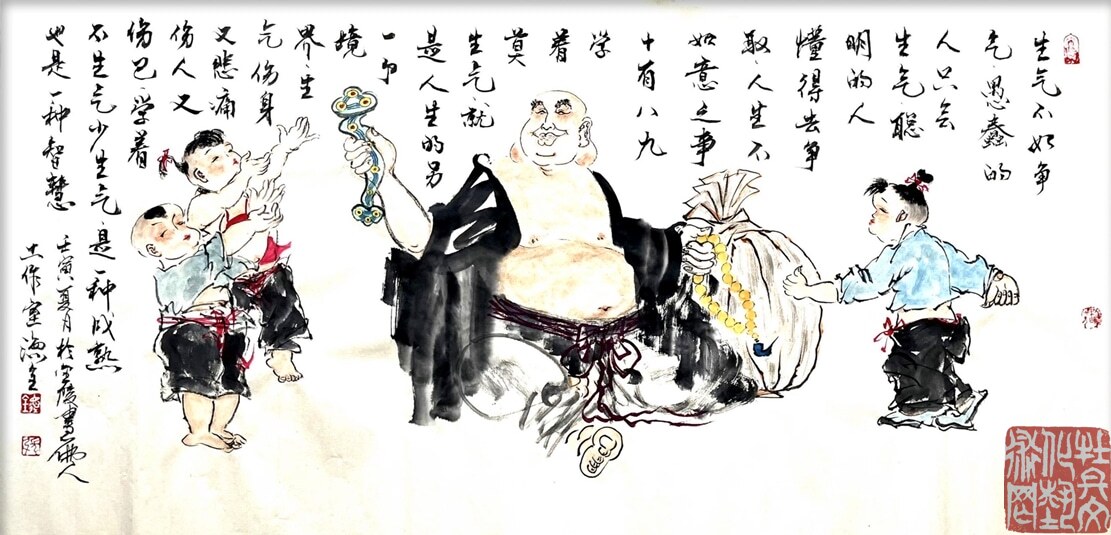 生气不如争
气、愚蠢的
人只会
生气、聪
明的人
懂得去争
取、人生不
如意之事
十有八九
学
着
莫
生气、就
是人生的另
一个
境
界、生
气伤身
又悲痛
伤人又
伤己、学着
不生气少生气、是一种成熟
也是一种智慧
壬寅夏月於金陵画佛人
工作室
杜兵文
化艺
术网